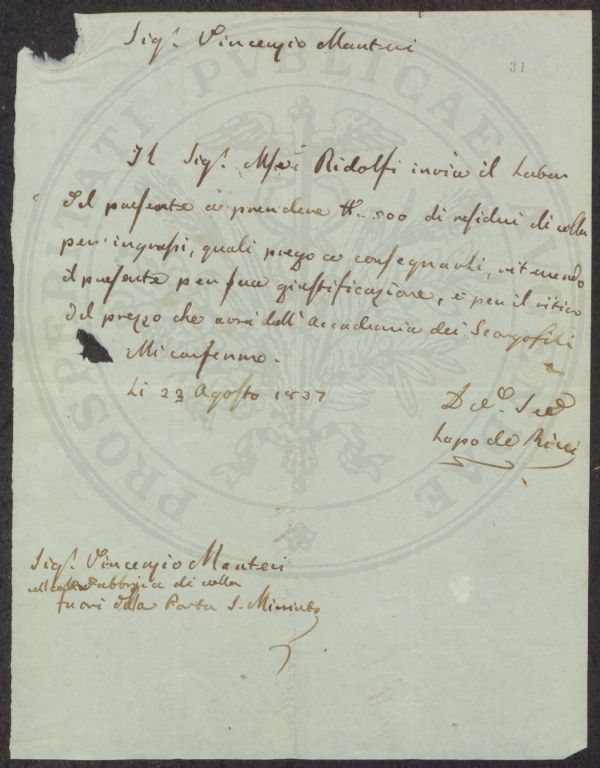 Sig.r Vincenzio Manteri
31
Il Sig.r Ridolfi invia il Lator
del presente a prendere ℔ 500 di residui di colla
per ingrassi, quali prego a consegnarli, ritenendo
il presente per sua giustificazione, e per il ritiro
del prezzo che avrà dall'Accademia dei Georgofili
Mi confermo.
Li 23 Agosto 1837
D.
Lapo de Ricci
Sig.r Vincenzio Manteri
Fabbrica di colla
fuori della Porta S. Miniato
PROSPERITATI PUBLICAE AUGENDAE